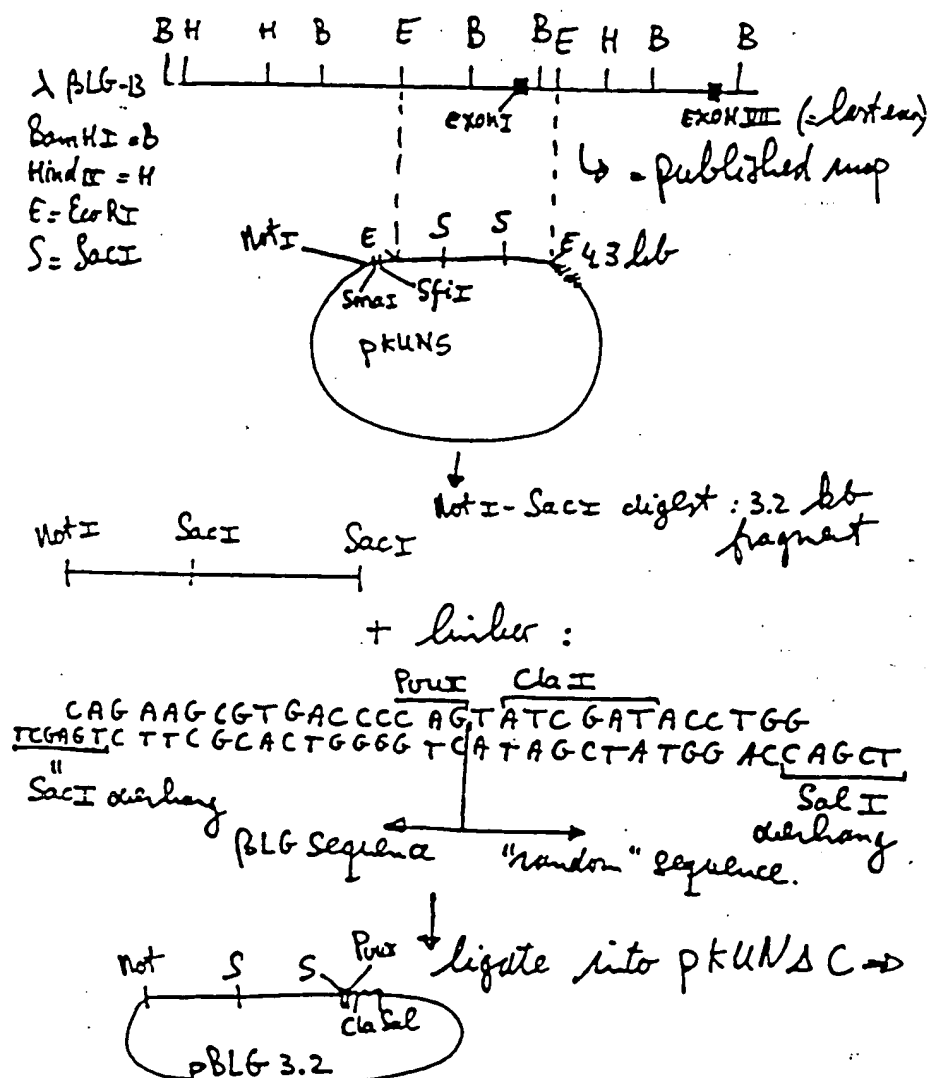 B H H B E B B E H B B
λ βLG-13
exon I
EXON VII (= last exon)
BamHI = B
↳ = published map
Hind III = H
E = EcoRI
S = SacI
NotI E S S E 4.3 kb
SmaI SfiI
pKUN5
NotI-SacI digest : 3.2 kb
fragment
NotI SacI SacI
+ linker :
ClaI
CAG AAG CGT GACCCC AGT ATC GAT ACC TGG
TCGAGTC TTC GCA CTGGGG TCA TAGCTA TGG ACC CAGCT
SacI overhang
Sal I
overhang
βLG Sequence
"random" sequence.
ligate into pKUNΔC ⇒
Not S S
Cla Sal
pBLG 3.2